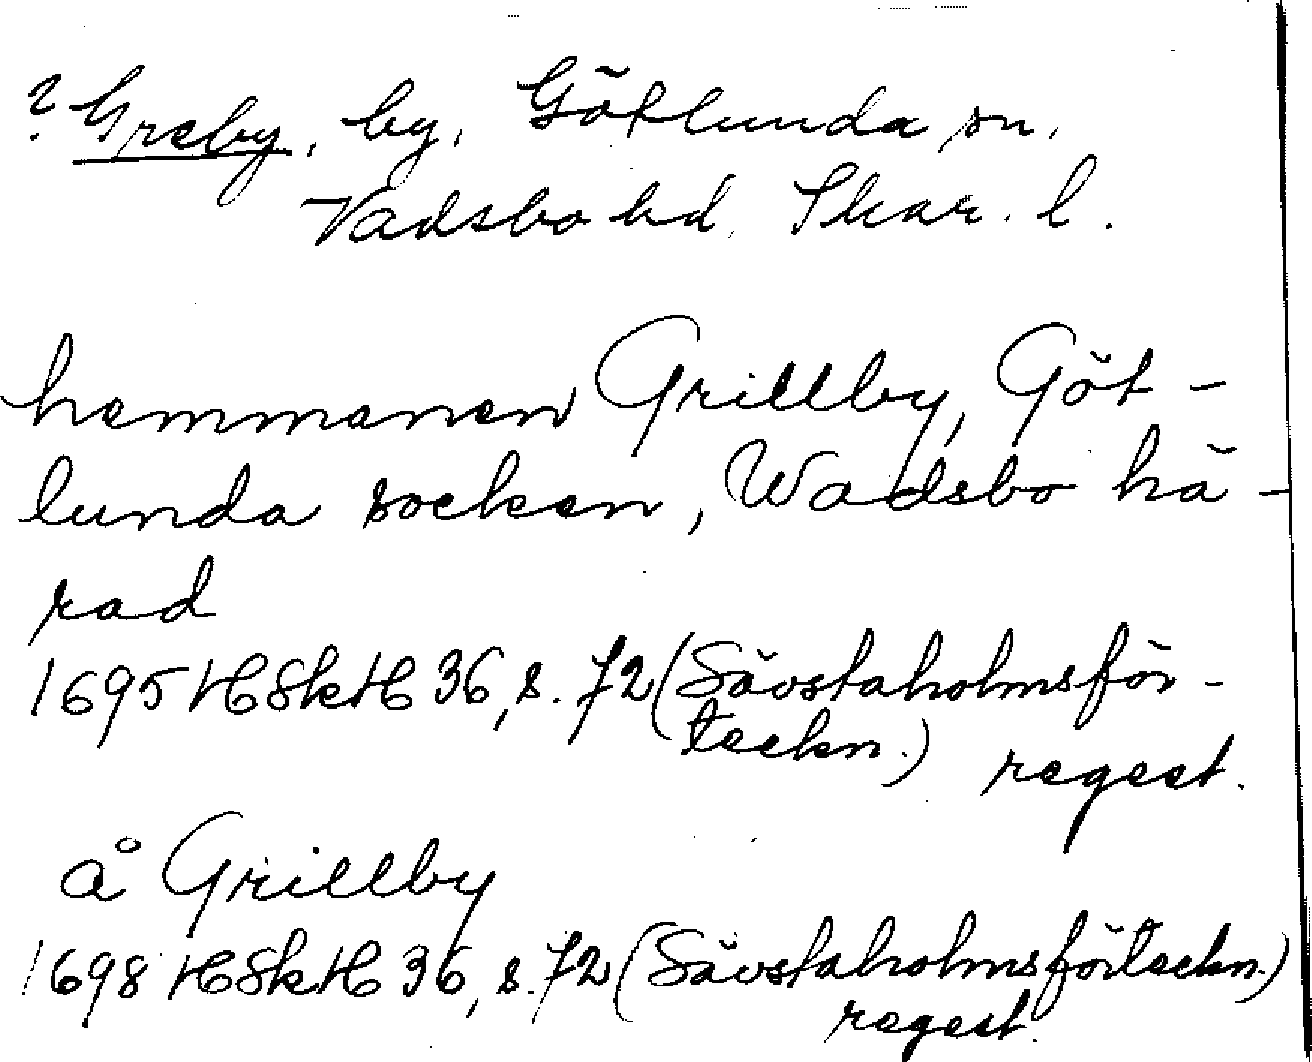 ? Greby, by, Götlunda sn,
Vadsbo hd, Skar. l.
hemmanen Grillby, Göt-
lunda socken, Wadsbo hä-
rad
1695 HSkH 36, s. 72 (Sävstaholmsför-
teckn.) regest.
å Grillby
1698 HSkH 36, s. 72 (Sävstaholmsförteckn.)
regest.